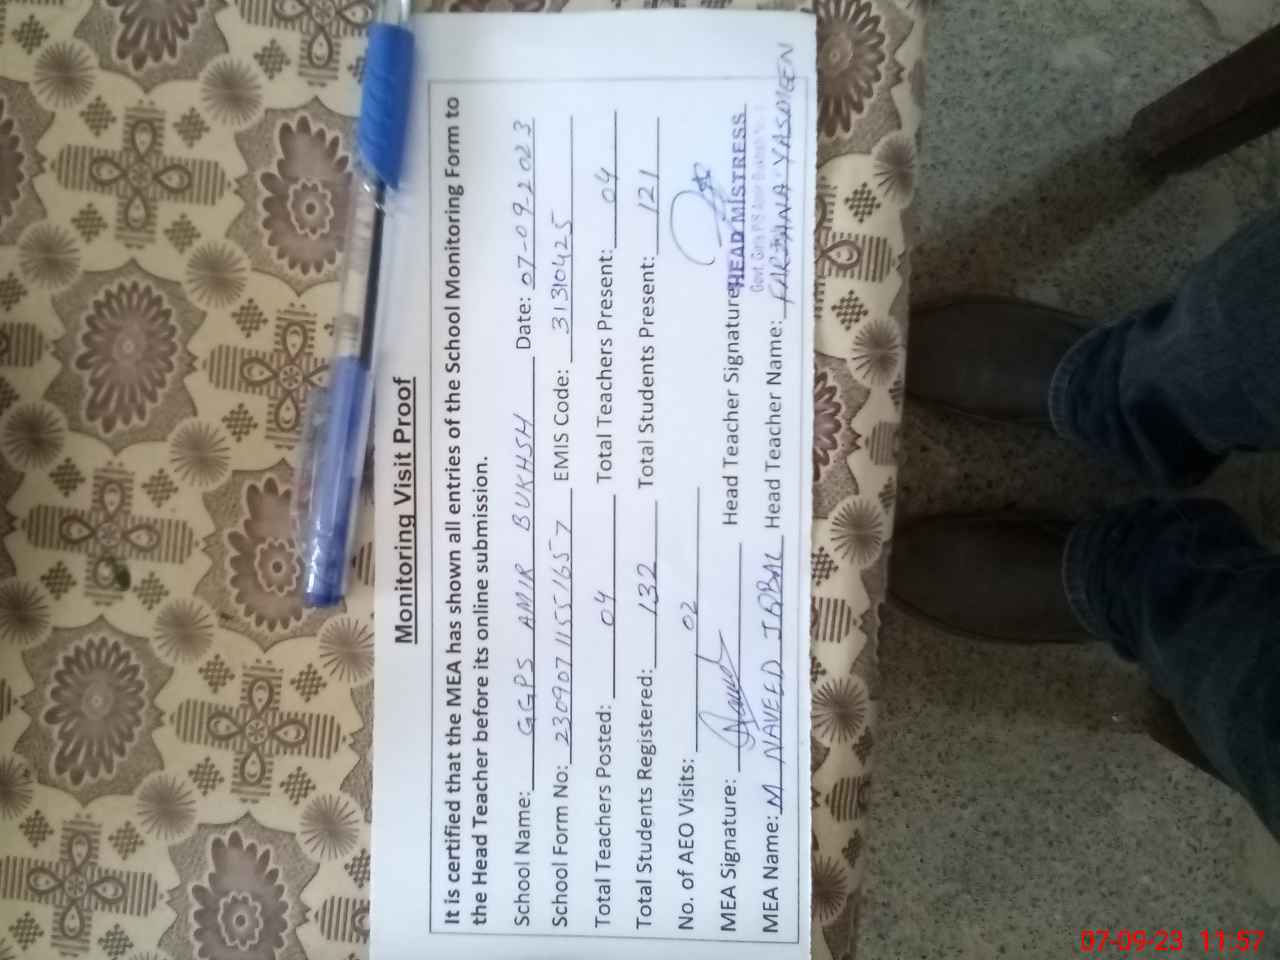 Monitoring Visit Proof
It is certified that the MEA has shown all entries of the School Monitoring Form to
the Head Teacher before its online submission.
School Name: GGPS AMIR BUKHSH Date: 07-09-2023
School Form No: 23090711551657 EMIS Code: 31310425
Total Teachers Posted: 04 Total Teachers Present: 04
Total Students Registered: 132 Total Students Present: 121
No. of AEO Visits: 02
MEA Signature: Head Teacher Signature:
HEAD MISTRESS
Govt. Girls P/S Amir Bukhsh
MEA Name: M NAVEED IQBAL Head Teacher Name: FARZANA YASMEEN
07-09-23 11:57